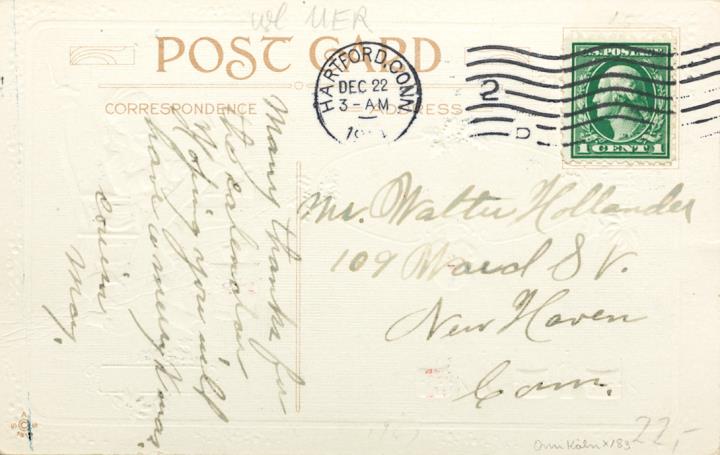 POST CARD
CORRESPONDENCE
ADDRESS
HARTFORD, CONN
DEC 22
3-AM
2
D
U.S. POSTAGE
1 CENT 1
Many thanks for
the calendar
Hoping you will
have a merry Xmas.
Cousin
May.
Mr. Walter Hollander
109 Ward St.
New Haven
Conn.
22,-